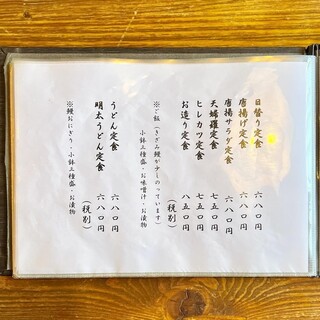 日替り定食 六八〇円
唐揚げ定食 六八〇円
唐揚サラダ定食 六八〇円
天婦羅定食 七五〇円
ヒレカツ定食 七五〇円
お造り定食 八五〇円
(税別)
※ご飯(きざみ鰻が少しのっています)
小鉢三種盛・お味噌汁・お漬物
うどん定食 六八〇円
明太うどん定食 六八〇円
(税別)
※鰻おにぎり・小鉢三種盛・お漬物